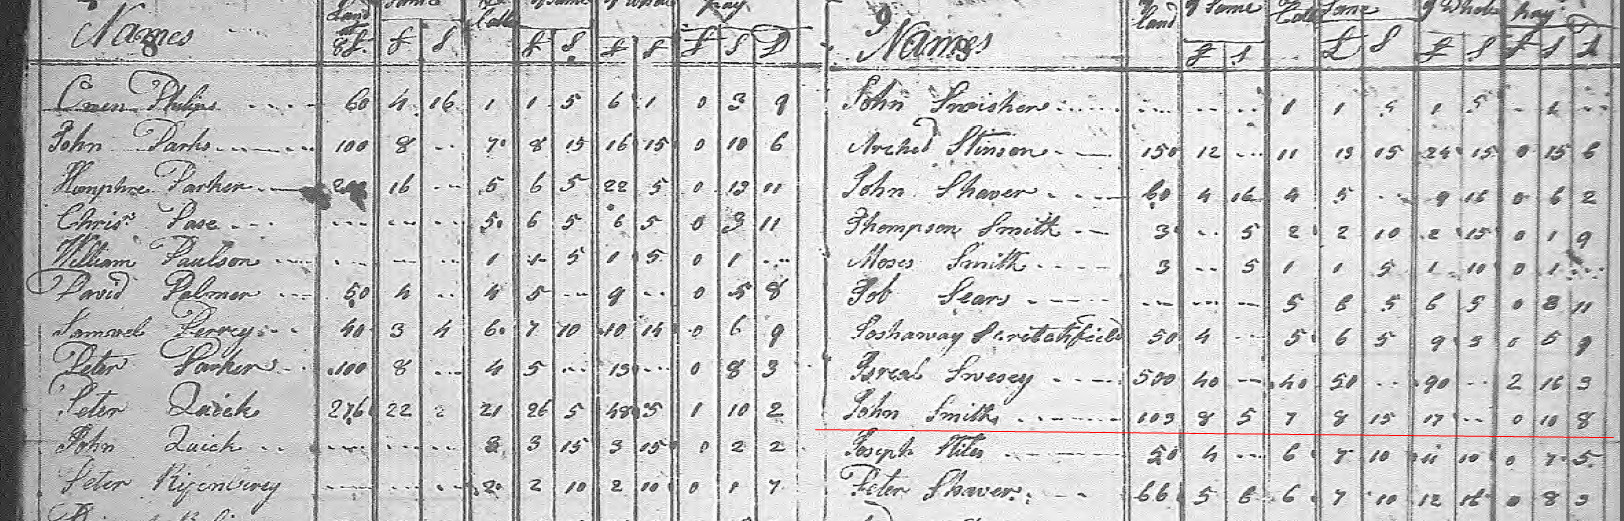 Names Land £ S Cattle £ S £ S £ S D
Owen Philips 60 4 16 1 1 5 6 1 0 3 9
John Parks 100 8 7 8 15 16 15 0 10 6
Humphre Parker 16 5 6 5 22 5 0 13 11
Chrisr Pase 5 6 5 6 5 0 3 11
William Paulson 1 1 5 1 5 0 1
David Palmer 50 4 4 5 9 0 5 8
Samuel Perrey 40 3 4 6 7 10 10 14 0 6 9
Peter Parker 100 8 4 5 13 0 8 3
Peter Quick 276 22 2 21 26 5 48 5 1 10 2
John Quick 3 3 15 3 15 0 2 2
Peter 2 2 10 2 10 0 1 7
Names of land of Same Cattle Same of Whole pay
£ S £ S £ S £ S D
John Swisher 1 1 5 1 5 1
Arched Stinson 150 12 11 13 15 15 0 15 6
John Shaver 60 4 16 4 5 9 16 0 6 2
Thompson Smith 3 5 2 2 10 2 15 0 1 9
Moses Smith 3 5 1 1 5 1 10 0 1
Job Sears 5 6 5 6 5 0 3 11
Joshaway 50 4 5 6 5 0 5 9
Isreal Swesey 500 40 40 50 90 2 16 3
John Smith 103 8 5 7 8 15 17 0 10 8
Joseph Stiles 50 4 6 7 10 11 10 0 7 5
Peter Shaver 66 5 6 6 7 10 12 16 0 8 3